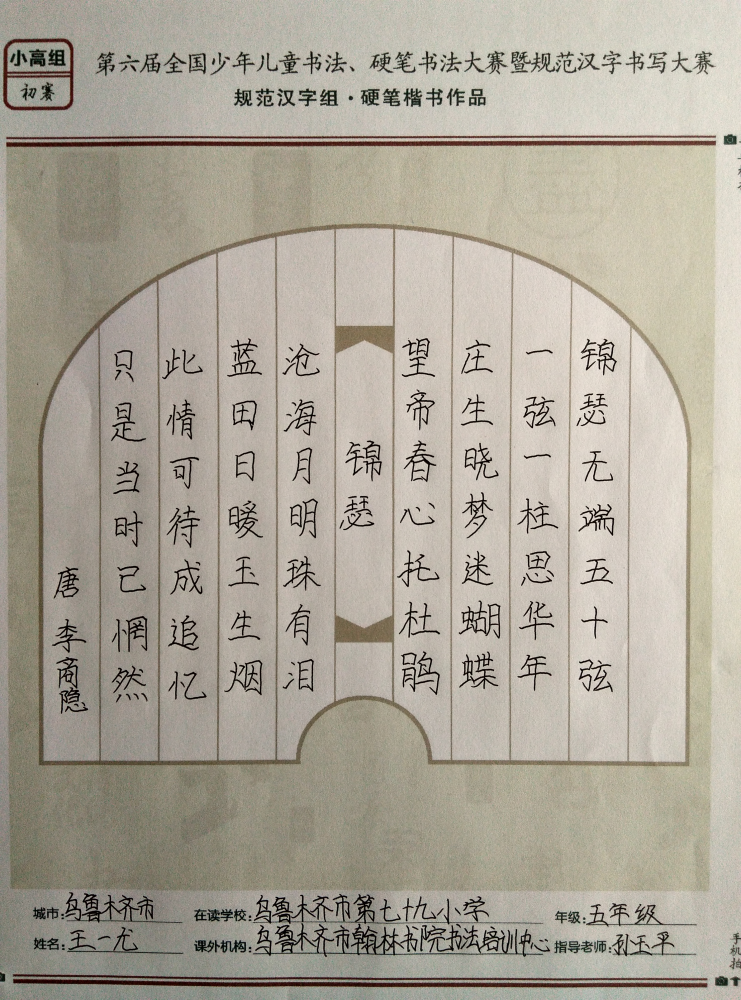 小高组
初赛
第六届全国少年儿童书法、硬笔书法大赛暨规范汉字书写大赛
规范汉字组·硬笔楷书作品
锦瑟无端五十弦
一弦一柱思华年
庄生晓梦迷蝴蝶
望帝春心托杜鹃
锦瑟
沧海月明珠有泪
蓝田日暖玉生烟
此情可待成追忆
只是当时已惘然
唐 李商隐
城市:乌鲁木齐市 在读学校:乌鲁木齐市第七十九小学 年级:五年级
姓名:王一尤 课外机构:乌鲁木齐市翰林书院书法培训中心 指导老师:孙玉平